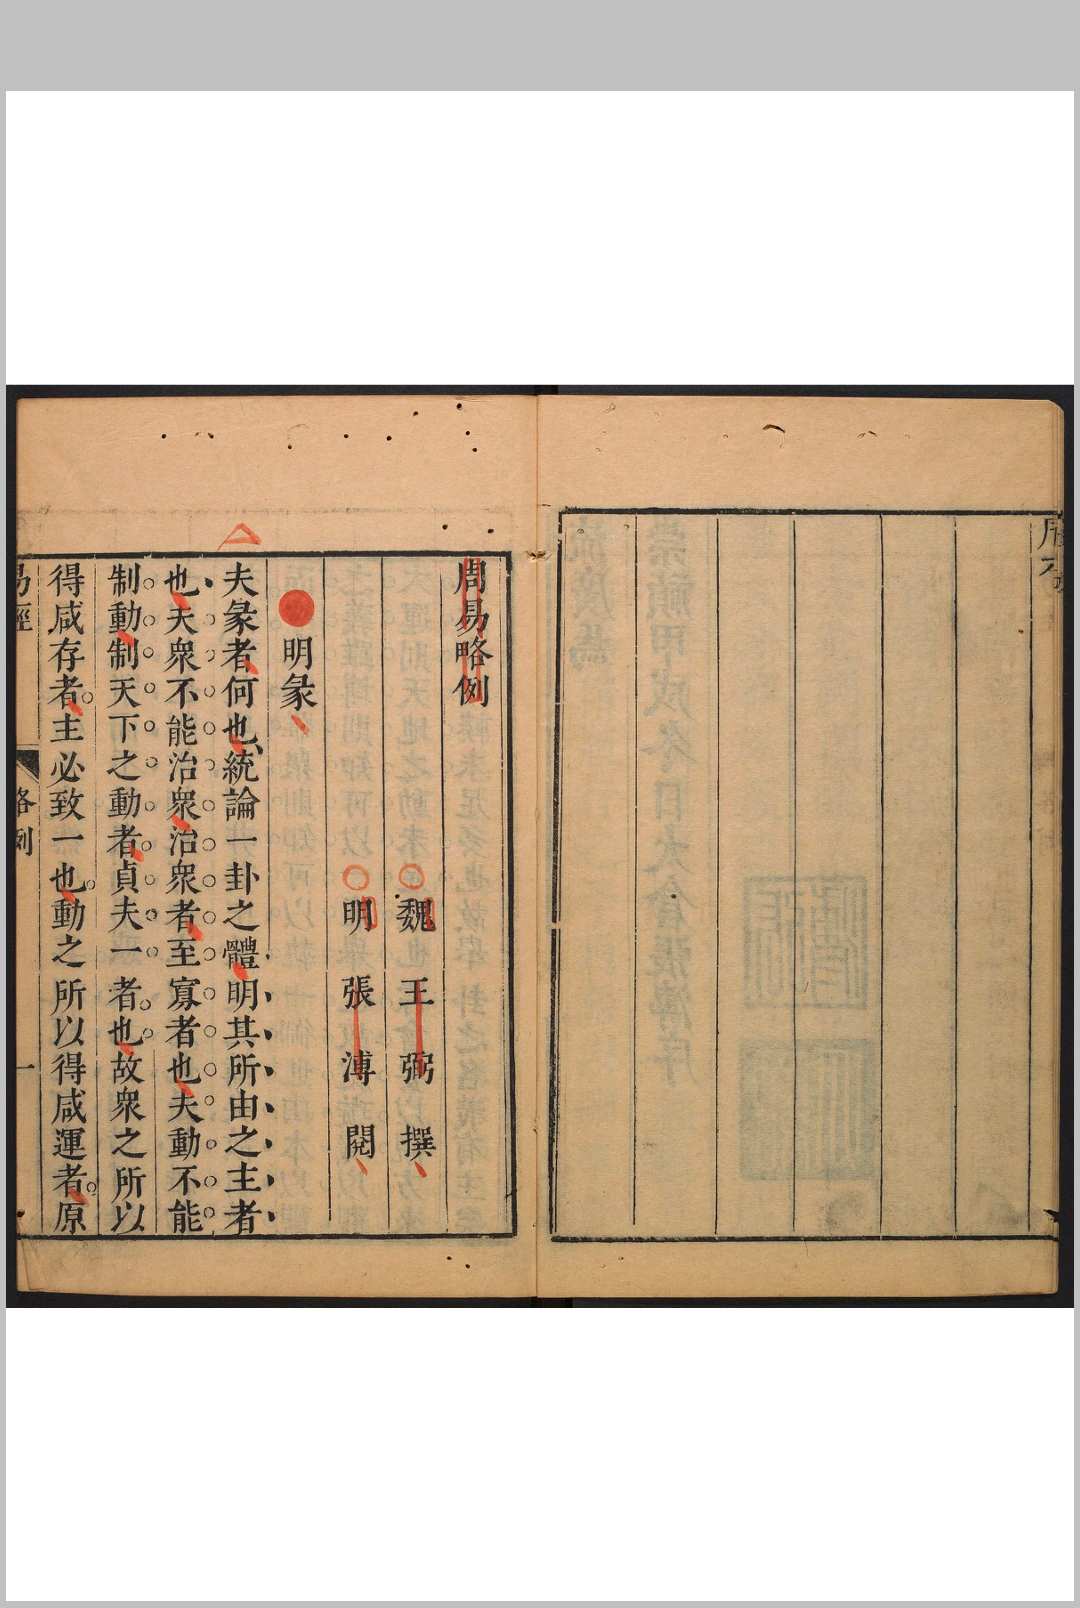 周易略例
魏 王弼 撰
明 張溥 閱
明彖
夫彖者何也統論一卦之體明其所由之主者
也夫衆不能治衆治衆者至寡者也夫動不能
制動制天下之動者貞夫一者也故衆之所以
得咸存者主必致一也動之所以得咸運者原
易經 略例 一